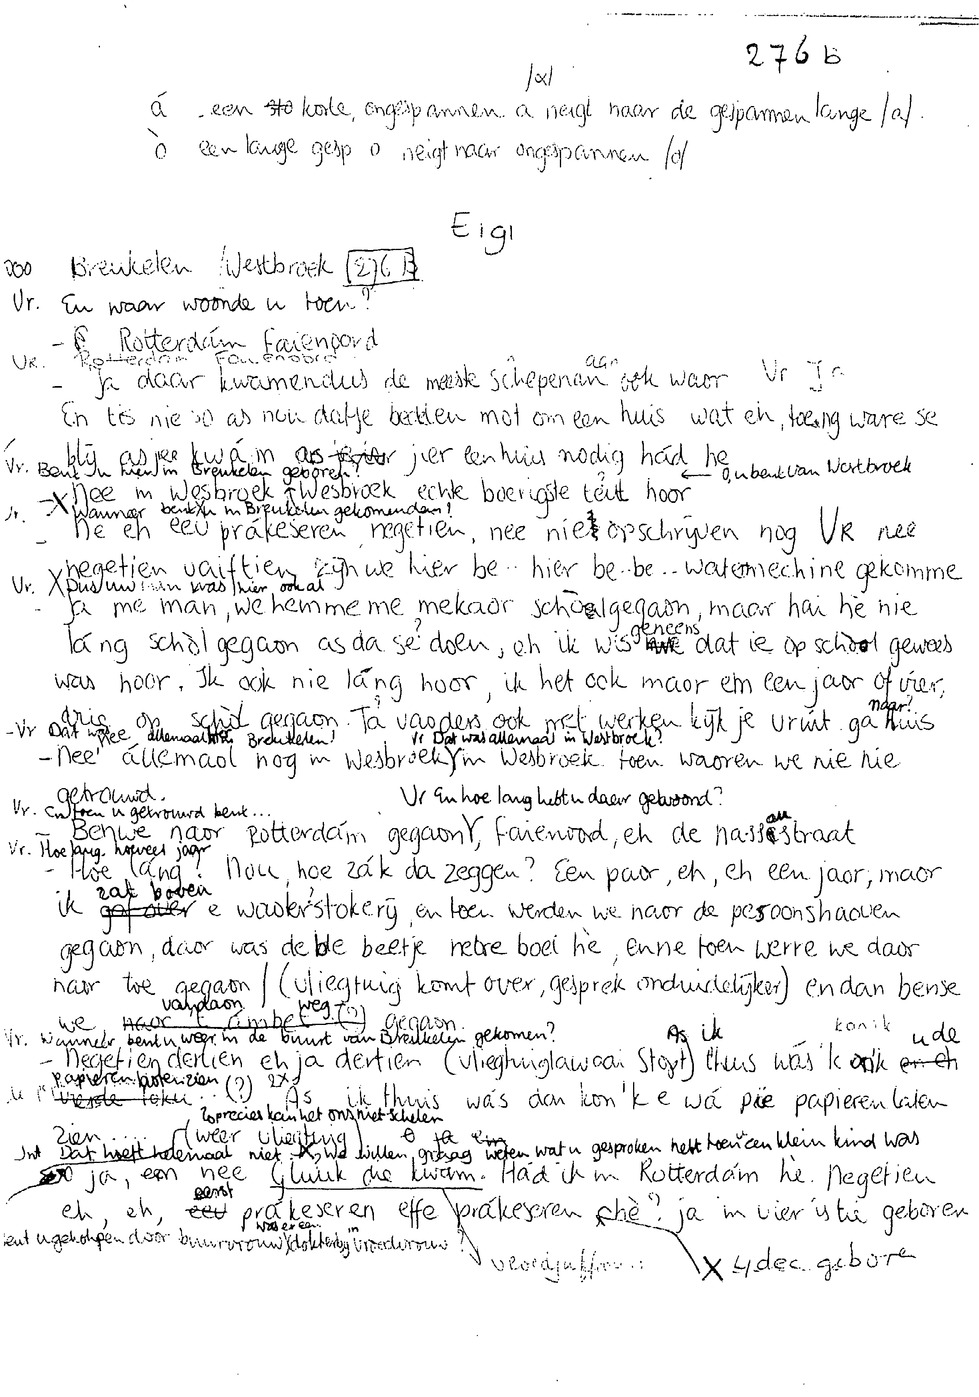 276 b
/α/
á een korte, ongespannen a neigt naar de gespannen lange /a/.
ò een lange gesp o neigt naar ongespannen /o/
Eigi
Breukelen /Westbroek 276 B
Vr. En waar woonde u toen?
- Rotterdám Faienoord
Vr. Rotterdam Feijenoord
- Ja daar kwamendus de meeste schepenan aan ook waor Vr Ja
En tis nie so as nou datje bedden mot om een huis wat eh, toeng ware se
blij as jee kwám as jier een huis nodig hád he
Vr. Bent u hier in Breukelen geboren? O, u bent van Westbroek
- Nee in Wesbroek, Wesbroek echte boerigste teit hoor
Vr. X Wanneer bent u in Breukelen gekomendan?
- He eh eeu prákeseren, negetien, nee niet opschrijven nog VR nee
negetien vaiftien zijn we hier be.. hier be..be.. watermechine gekomme
Vr. X Dus uw man was hier ook al
- Ja me man, we hemme me mekaor schòolgegaon, maar hai hè nie
láng schòl gegaon as da se doen, eh ik wis geneens dat ie op school gewees
was hoor. Ik ook nie láng hoor, ik het ook maor em een jaor of vier,
drie op schòl gegaon. Ja vaoders ook met werken kijk je vruit ga naar huis
- Vr Dat was allemaal in Breukelen? Nee Vr Dat was allemaal in Westbroek?
- Nee állemaol nog in Wesbroek Y in Wesbroek. toen waoren we nie nie
getrouwd. Vr En hoe lang hebt u daar gewoond?
Vr. En toen u getrouwd bent...
- Benwe naor Rotterdám gegaon Y, Faienoord, eh de nassaustraat
Vr. Hoe lang, hoeveel jaar
- Hoe láng? Nou, hoe zák da zeggen? Een paor, eh, eh een jaor, maor
ik zat boven e waoterstokerij, en toen werden we naor de persoonshaoven
gegaon, daor was de bde beetje netre boel hè, enne toen werre we daor
naor toe gegaon / (vliegtuig komt over, gesprek onduidelijker) en dan bense
we vandaon weg gegaon.
Vr. Wanneer bent u weer in de buurt van Breukelen gekomen? As ik kon ik u de
- Negetiendertien eh ja dertien (vlieghuiglawaai stopt) thuis wás 'k
papieren laten zien (?) 2x As ik thuis wás dan kon 'k e wá pie papieren laten
zien.... (weer vliegtuig) zo precies kan het ons niet schelen
Int Dat hoeft helemaal niet, we willen graag weten wat u gesproken hebt toen u een klein kind was
ja, een nee Gluuk die kwam. Hád ik in Rotterdám hè. Negetien
eh, eh, eerst prákeseren effe prákeseren hè? ja in vier is tie geboren
bent u geholpen door buurvrouw, was er een dokter bij in vroedvrouw?
vroedjuffrouw X 4 dec. gebore